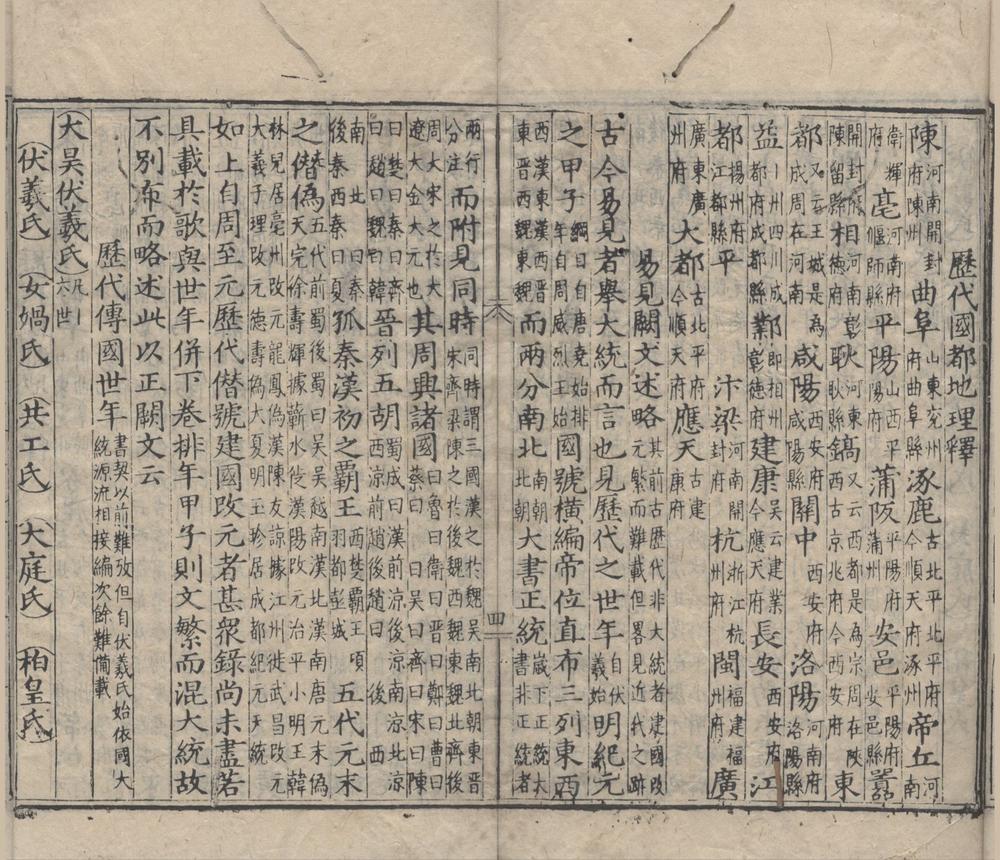 歷代國都地理釋
陳河南開封府陳州曲阜山東兗州府曲阜縣涿鹿古北平北平府今順天府涿州帝丘河南
衛輝府亳河南府偃師縣平陽山西平陽府蒲阪平陽府蒲州安邑平陽府安邑縣囂
開封府陳留縣相河南彰德府耿河東耿縣鎬又云西都是為宗周在陝西古京兆府今西安府東
都又云王城是為成周在河南咸陽西安府咸陽縣關中西安府洛陽河南府洛陽縣
益州四川成都府成都縣鄴即相州彰德府建康吳云建業今應天府長安西安府江
都揚州府江都縣平汴梁河南開封府杭浙江杭州府閩福建福州府廣
廣東廣州府大都古北平府今順天府應天古建康府
易見闕文述略其前古歷代非大統者建國改元繁而難載但畧見近代之跡
古今易見者舉大統而言也見歷代之世年自伏羲始明紀元
之甲子綱曰自唐堯始排年自周威烈王始國號橫編帝位直布三列東西
西漢東漢西晉東晉西魏東魏而兩分南北南朝北朝大書正統歲下正統大書非正統者
四
兩行分注而附見同時同時謂三國漢之於魏吳南北朝東晉宋齊梁陳之於後魏西魏東魏北齊後
周大宋之於大遼大金大元也其周興諸國曰魯曰衛曰晉曰鄭曰曹曰蔡曰曰吳曰齊曰宋曰陳
曰楚曰秦曰齊曰趙曰魏曰韓晉列五胡蜀成曰漢前涼後涼南涼北涼西涼前趙後趙曰後西
南北曰秦後秦西秦曰夏孤秦漢初之覇王西楚覇王項羽都彭城五代元末
之僭偽五代前蜀後蜀曰吳吳越南漢北漢南唐元末偽天完徐壽輝據蘄水徙漢陽改元治平小明王韓
林兒居亳州改元龍鳳偽漢陳友諒據江州徙武昌改元大義于理改元德壽偽大夏明玉珍居成都紀元天統
如上自周至元歷代僣號建國改元者甚衆錄尚未盡若
具載於歌與世年併下卷排年甲子則文繁而混大統故
不別沛而略述此以正闕文云
歷代傳國世年書契以前難攷但自伏羲氏始依國大統源流相接編次餘難備載
大昊伏羲氏凡一六世
伏羲氏 女媧氏 共工氏 大庭氏 柏皇氏